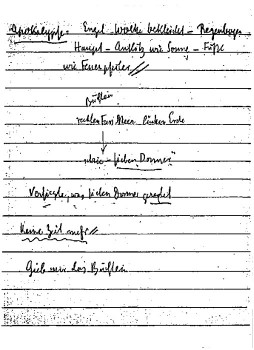 Apokalypse: Engel Wolke bekleidet – Regenbogen
Haupt – Antlitz wie Sonne – Füße
wie Feuerpfeiler
Büchlein
rechter Fuss Meer linken Erde
– sieben Donner"
Versiegle, was sieben Donner geredet
Keine Zeit mehr
Gieb mir das Büchlein